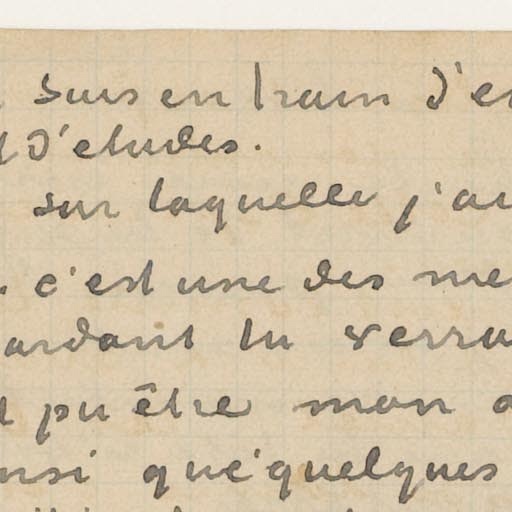 suis en train d'en
d'etudes.
sur laquelle j'ai
c'est une des me
ardant tu verra
pu être mon
nsi que quelques